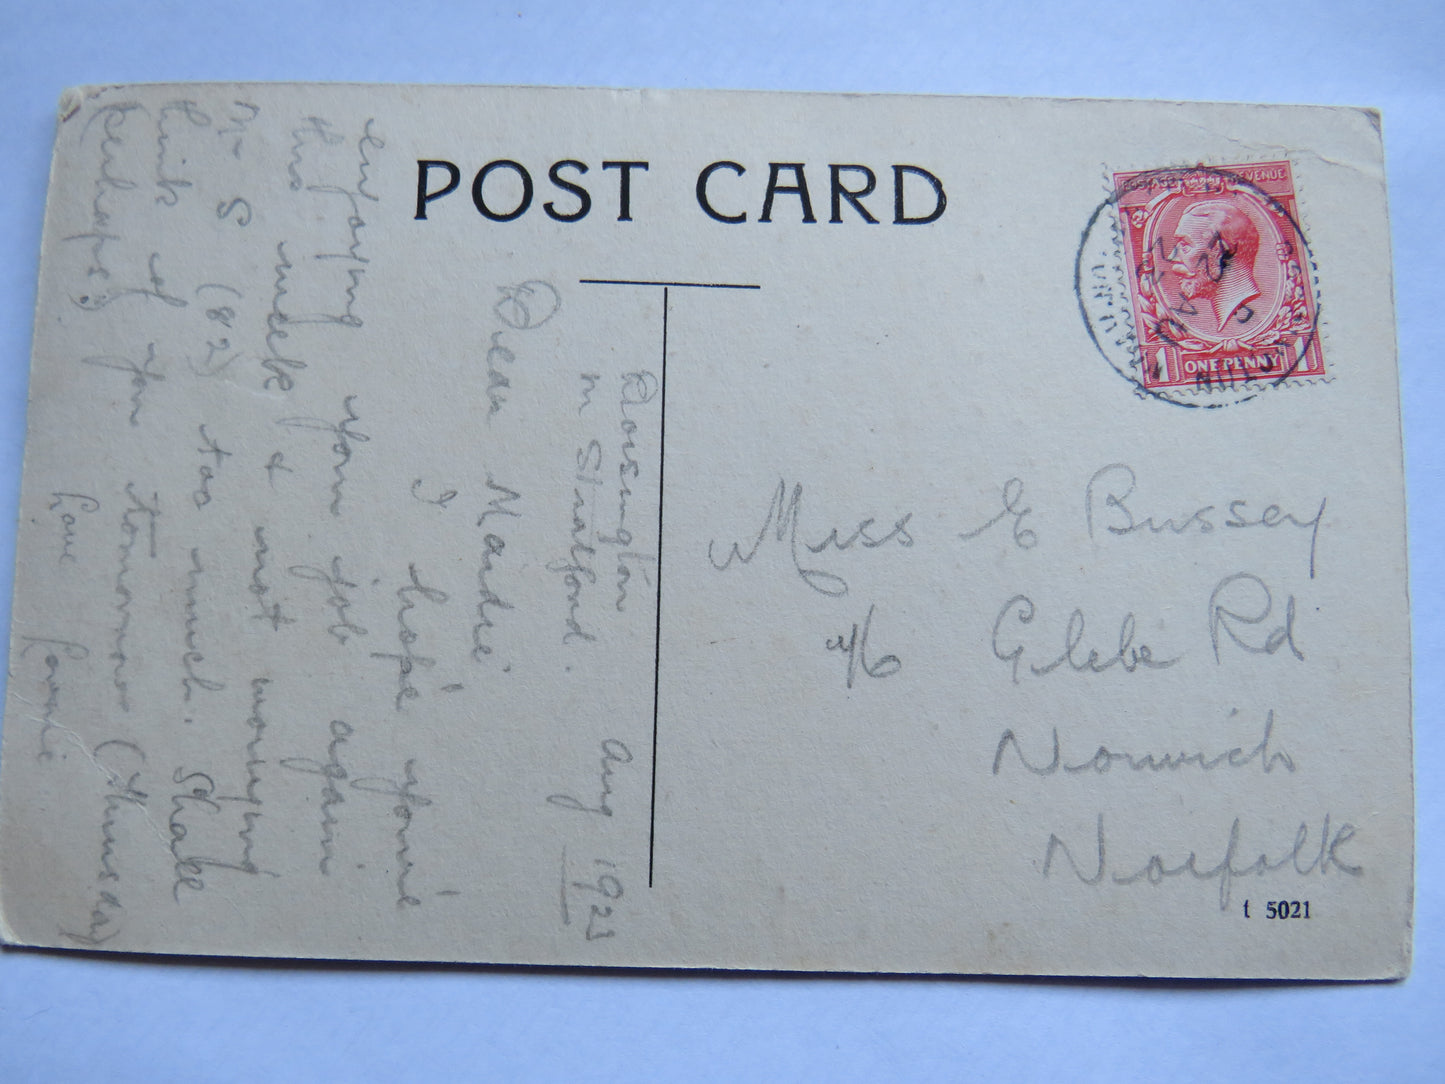 POST CARD
POSTAGE REVENUE
1 ONE PENNY 1
Miss E Bussey
46 Glebe Rd
Norwich
Norfolk
t 5021
Dorsington
nr Stratford.
Aug 1923
Dear Maudie
I hope you're
enjoying your job again
this week & not worrying
Mr S (82) too much. Shall
think of you tomorrow (Thursday)
(perhaps?)
Love